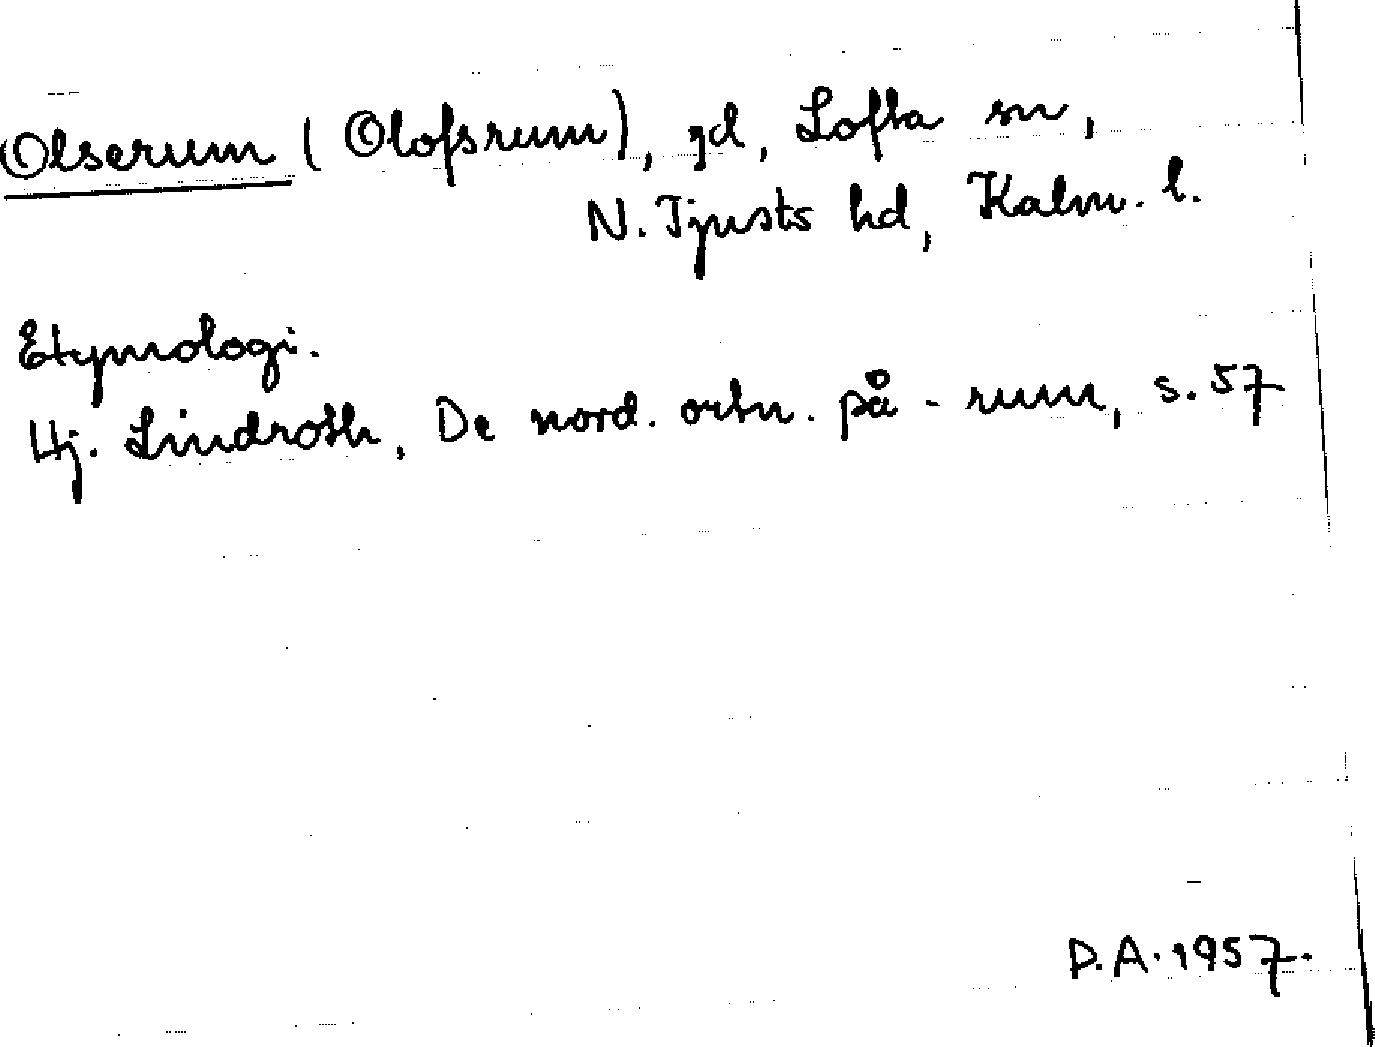 Olserum (Olofsrum), gd, Lofta sn,
N. Tjusts hd, Kalm. l.
Etymologi.
Hj. Lindroth, De nord. ortn. på -rum, s. 57
D.A. 1957.